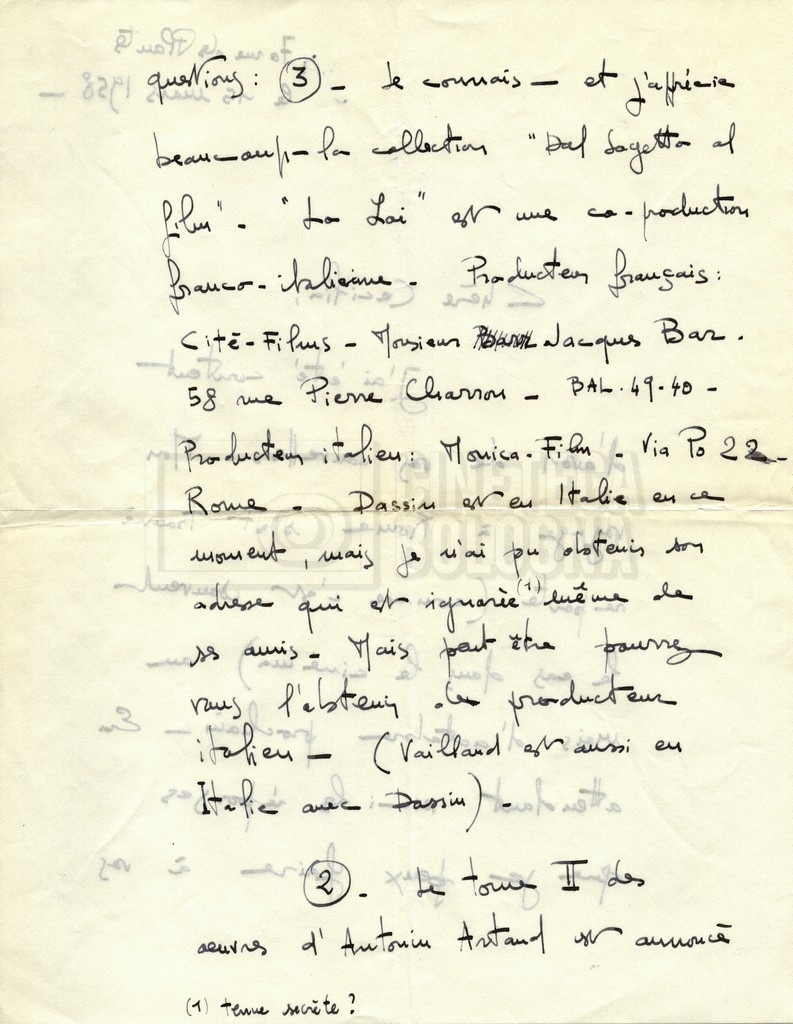 questions : ③ - Je connais - et j'apprécie
beaucoup - la collection "Dal Sogetto al
film" - "La Loi" est une co-production
franco-italienne - Producteur français :
Cité-Films - Monsieur Jacques Bar.
58 rue Pierre Charron - BAL. 49-40 -
Producteur italien : Monica-Film - Via Po 22 -
Rome - Dassin est en Italie en ce
moment, mais je n'ai pu obtenir son
adresse qui est ignorée (1) même de
ses amis - Mais peut être pourrez
vous l'obtenir du producteur
italien - (Vailland est aussi en
Italie avec Dassin) -
② - Le tome II des
oeuvres d'Antonin Artaud est annoncé
(1) tenue secrète ?
CINETECA
BOLOGNA